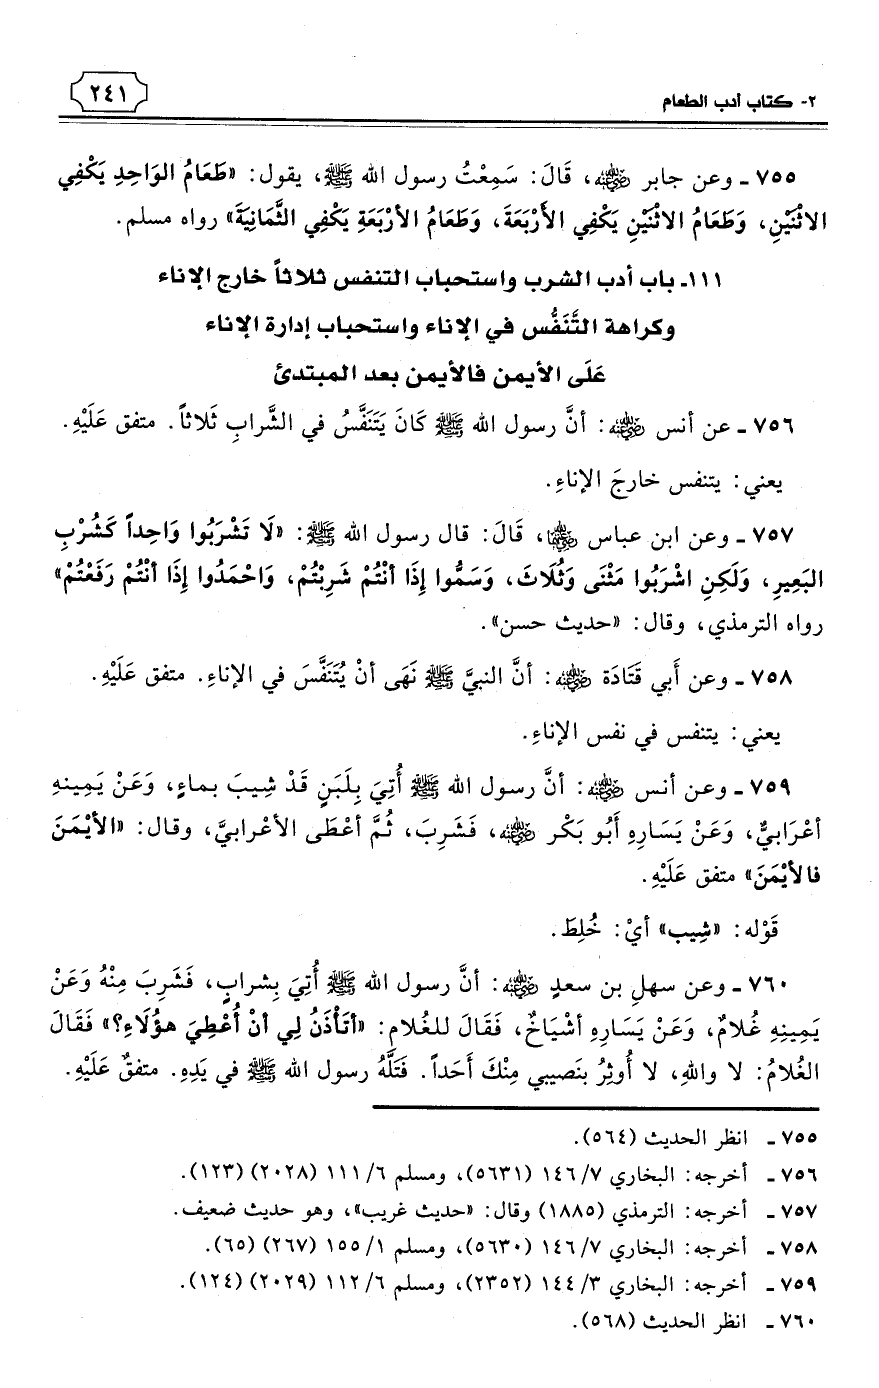 ٢- كتاب أدب الطعام
٢٤١
٧٥٥ ـ وعن جابر ﵁، قَالَ: سَمِعْتُ رسول الله ﷺ، يقول: «طَعَامُ الوَاحِدِ يَكْفِي
الاثْنَيْنِ، وَطَعَامُ الاثْنَيْنِ يَكْفِي الأَرْبَعَةَ، وَطَعَامُ الأرْبَعَةِ يَكْفِي الثَّمَانِيَةَ» رواه مسلم.
١١١ـ باب أدب الشرب واستحباب التنفس ثلاثاً خارج الإناء
وكراهة التَّنَفُّس في الإناء واستحباب إدارة الإناء
عَلَى الأيمن فالأيمن بعد المبتدئ
٧٥٦ ـ عن أنس ﵁: أنَّ رسول الله ﷺ كَانَ يَتَنَفَّسُ في الشَّرابِ ثَلاثاً. متفق عَلَيْهِ.
يعني: يتنفس خارجَ الإناءِ.
٧٥٧ ـ وعن ابن عباس ﵄، قَالَ: قال رسول الله ﷺ: «لَا تَشْرَبُوا وَاحِداً كَشُرْبِ
البَعِيرِ، وَلَكِنِ اشْرَبُوا مَثْنَى وَثُلَاثَ، وَسَمُّوا إِذَا أنْتُمْ شَرِبْتُمْ، وَاحْمَدُوا إِذَا أنْتُمْ رَفَعْتُمْ»
رواه الترمذي، وقال: «حديث حسن».
٧٥٨ ـ وعن أَبي قَتَادَة ﵁: أنَّ النبيَّ ﷺ نَهَى أنْ يُتَنَفَّسَ في الإناءِ. متفق عَلَيْهِ.
يعني: يتنفس في نفس الإناءِ.
٧٥٩ ـ وعن أنس ﵁: أنَّ رسول الله ﷺ أُتِيَ بِلَبَنٍ قَدْ شِيبَ بماءٍ، وَعَنْ يَمِينهِ
أعْرَابيٌّ، وَعَنْ يَسَارِهِ أَبُو بَكْر ﵁، فَشَرِبَ، ثُمَّ أعْطَى الأعْرابيَّ، وقال: «الأيْمَنَ
فالأيْمَنَ» متفق عَلَيْهِ.
قَوْله: «شِيب» أيْ: خُلِطَ.
٧٦٠ ـ وعن سهلِ بن سعدٍ ﵁: أنَّ رسول الله ﷺ أُتِيَ بِشرابٍ، فَشَرِبَ مِنْهُ وَعَنْ
يَمِينِهِ غُلامٌ، وَعَنْ يَسَارِهِ أشْيَاخٌ، فَقَالَ للغُلام: «أتَأْذَنُ لِي أنْ أُعْطِيَ هؤُلَاءِ؟» فَقَالَ
الغُلامُ: لا واللهِ، لا أُوثِرُ بنَصيبي مِنْكَ أَحَداً. فَتَلَّهُ رسول الله ﷺ في يَدِهِ. متفقٌ عَلَيْهِ.
٧٥٥ ـ انظر الحديث (٥٦٤).
٧٥٦ ـ أخرجه: البخاري ٧/ ١٤٦ (٥٦٣١)، ومسلم ٦/ ١١١ (٢٠٢٨) (١٢٣).
٧٥٧ ـ أخرجه: الترمذي (١٨٨٥) وقال: «حديث غريب»، وهو حديث ضعيف.
٧٥٨ ـ أخرجه: البخاري ٧/ ١٤٦ (٥٦٣٠)، ومسلم ١/ ١٥٥ (٢٦٧) (٦٥).
٧٥٩ ـ أخرجه: البخاري ٣/ ١٤٤ (٢٣٥٢)، ومسلم ٦/ ١١٢ (٢٠٢٩) (١٢٤).
٧٦٠ ـ انظر الحديث (٥٦٨).